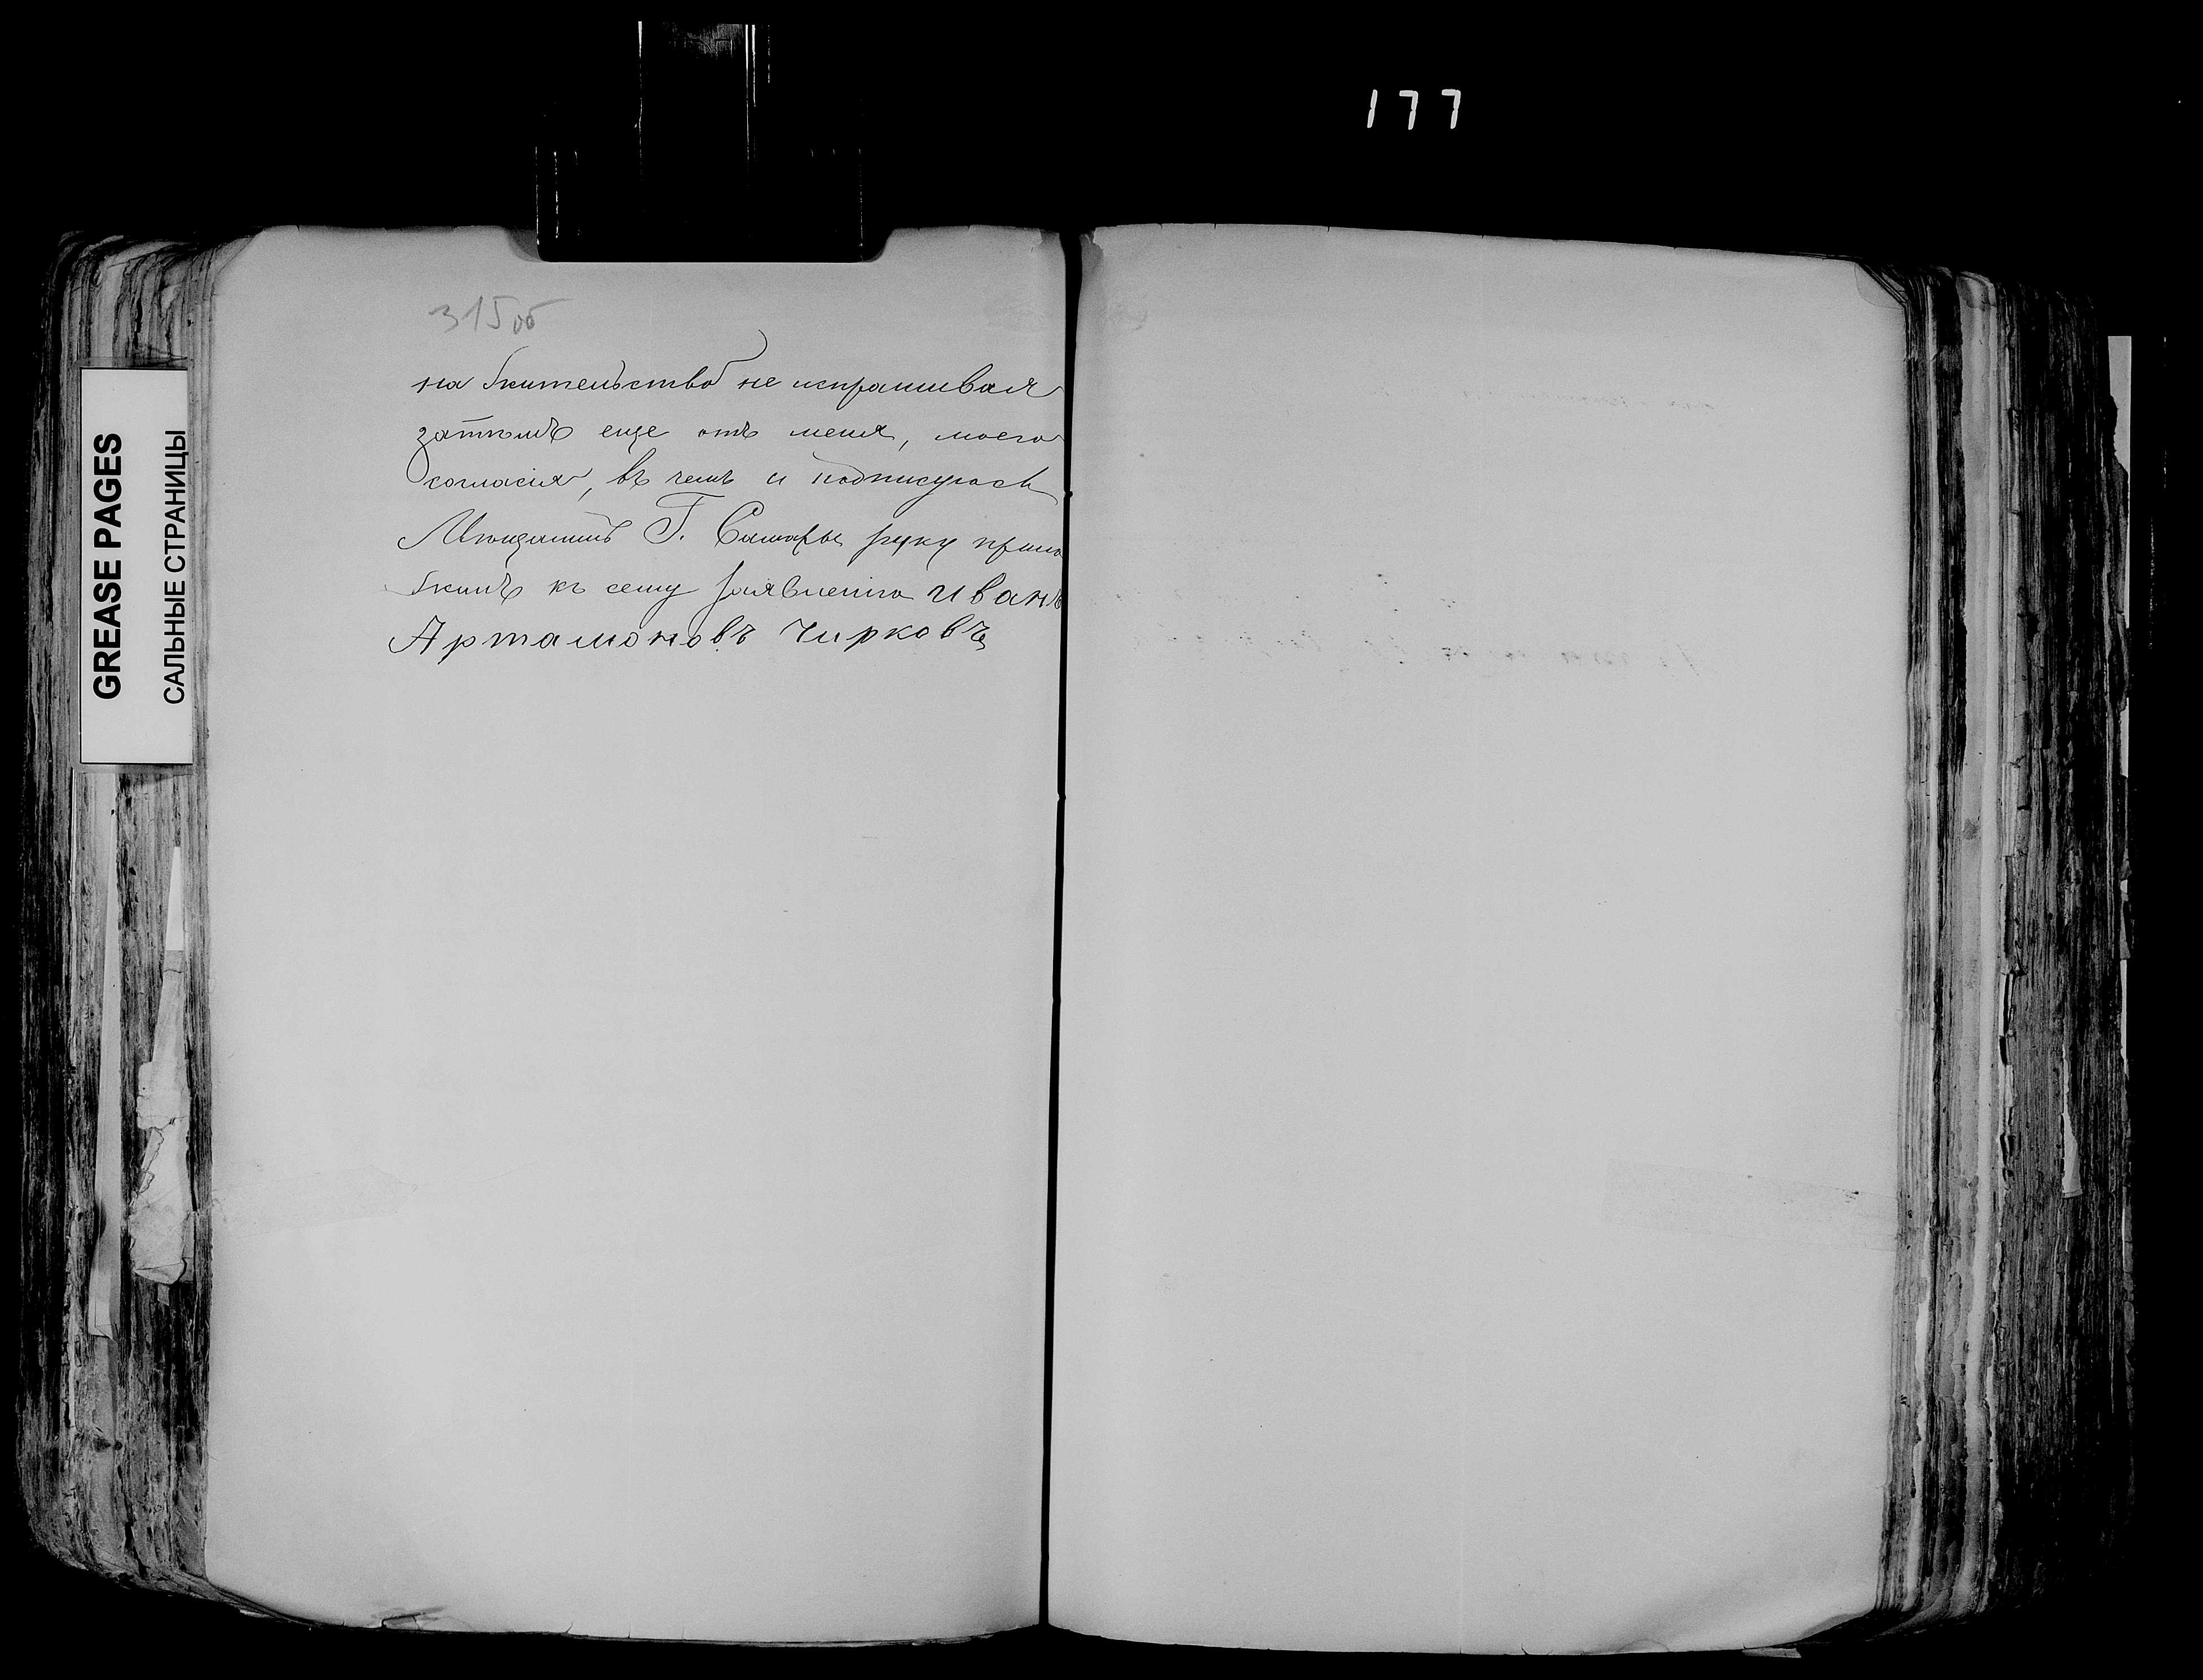 177
315об
на жительство не испрашивая
затѣмъ еще отъ меня, моего
согласія, въ чемъ и подписуюсь
Мѣщанинъ Г. Самары руку прило
жилъ къ сему заявленію Иванъ
Артамоновъ Чирковъ
GREASE PAGES
САЛЬНЫЕ СТРАНИЦЫ